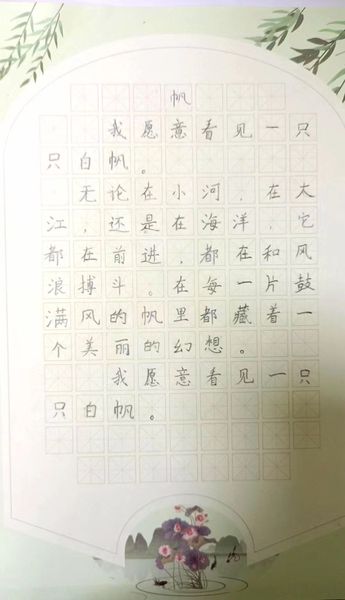 帆
我愿意看见一只
只白帆。
无论在小河，在大
江，还是在海洋，它
都在前进，都在和风
浪搏斗。在每一片鼓
满风的帆里都藏着一
个美丽的幻想。
我愿意看见一只
只白帆。